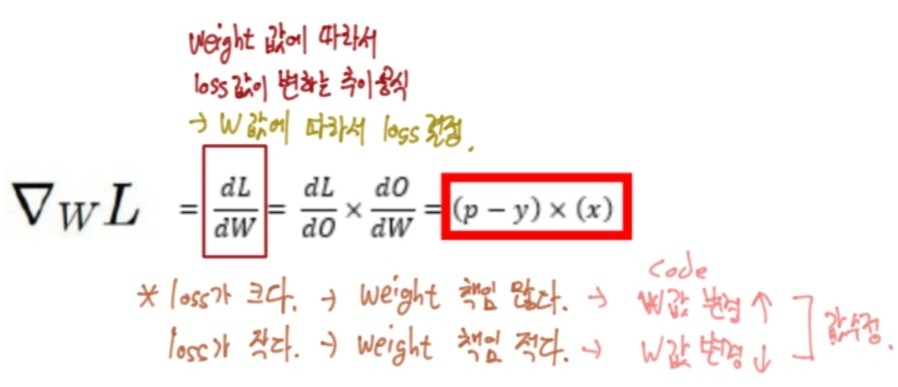 weight 값에 따라서
loss값이 변하는 추이 공식
→ W 값에 따라서 loss 결정.
∇_W L = dL/dW = dL/dO × dO/dW = (p − y) × (x)
code
* loss가 크다. → weight 책임 많다. → W값 변경 ↑
loss가 작다. → weight 책임 적다. → W값 변경 ↓
값수정.